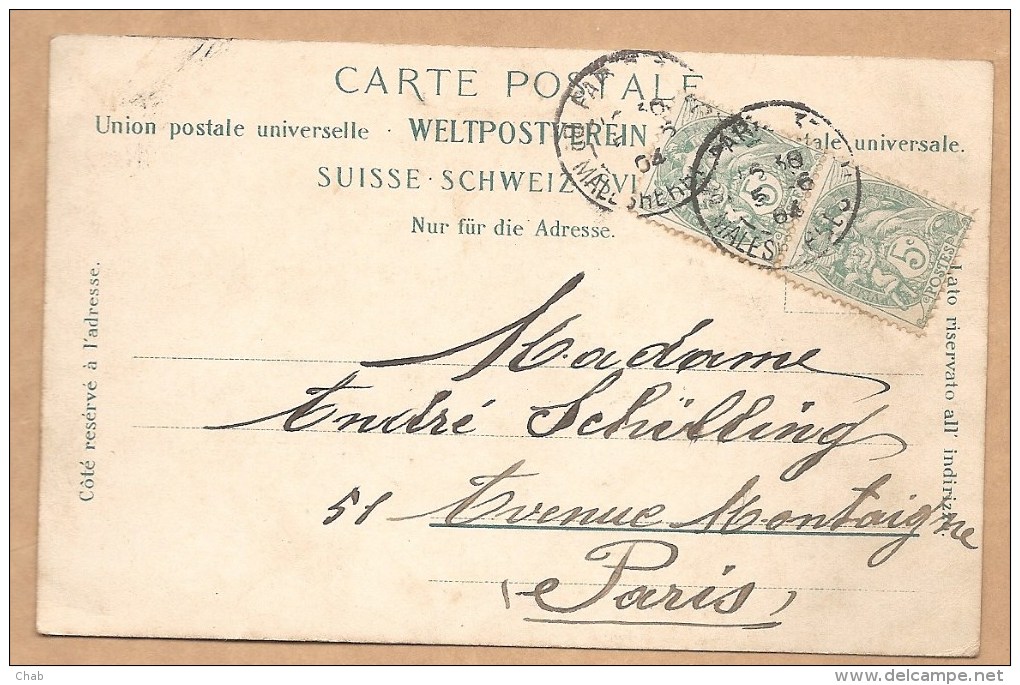 CARTE POSTALE
Union postale universelle · WELTPOSTVEREIN · universale.
SUISSE · SCHWEIZ
Nur für die Adresse.
Côté resérvé à l'adresse.
Lato riservato all' indirizzo.
5c
POSTES
PARIS
04
MALESHERBES
Madame
André Schilling
51 Avenue Montaigne
Paris
Chab
www.delcampe.net